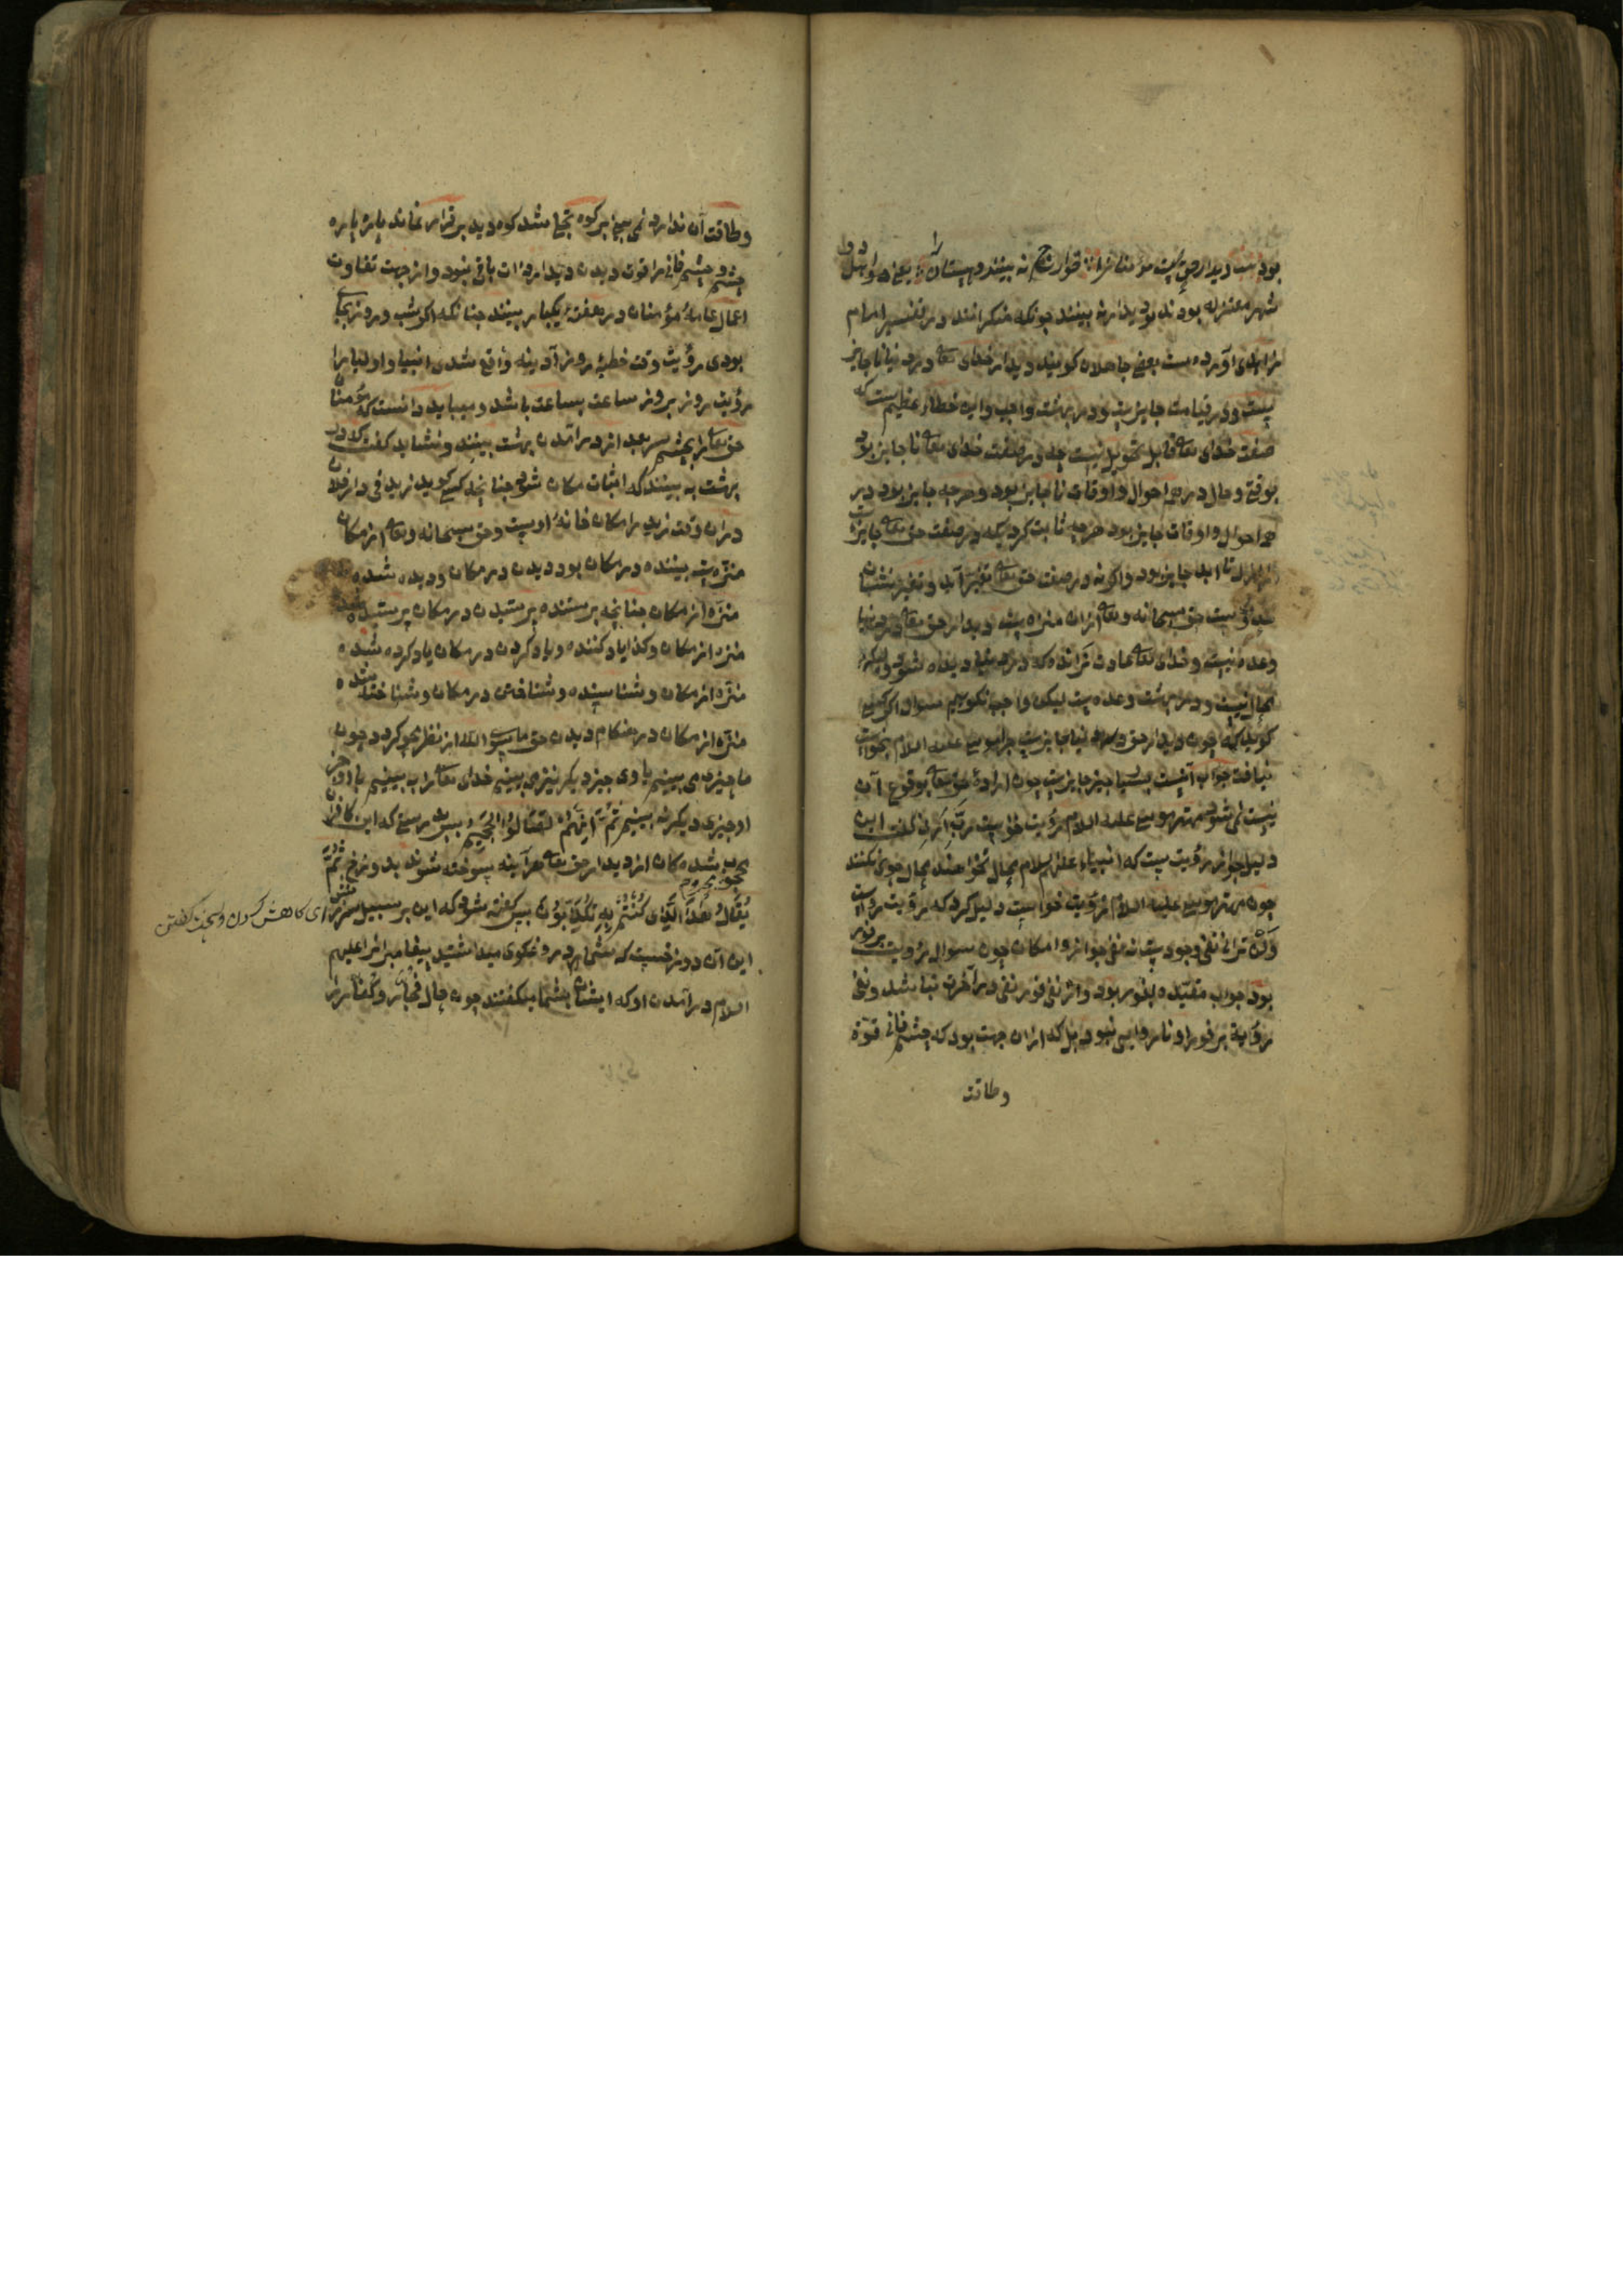 بود شب دیدار حق مؤمنانرا خوارج نه بینند و بیستان را یعنی دو اهل
شهر معتزله بودند بدیدار نه بینند چونکه منکرانند و در تفسیر امام
زاهدی آورده ست بعضی جاهلان گویند دیدار خدای تعالی در دنیا ناجایز
ست و در قیامت جایز ست و در بهشت واجب و این خطاء عظیم ست که
صفت خدای تعالی قابل تحویل نیست چه در صفت خدای تعالی ناجایز بود
بوقتی و حال در همه احوال و اوقات ناجایز بود و هرچه جایز بود در
همه احوال و اوقات جایز بود هرچه ثابت کردیکه در صفت حق تعالی جایز ست
از ازل تا ابد جایز بود و اگر نه در صفت حق تعالی تغیر آید و تغیر نشان
حق سبحانه و تعالی ازان منزه ست و دیدار حق تعالی در دنیا
وعده نیست و خدای تعالی عادت نرانده که در دنیا دیده شود
محال نیست و در بهشت وعده ست لیکن واجب نگوییم سوال اگر کسی
گوید که چون دیدار حق در دنیا جایز ست چرا موسی علیه السلام بخواست
نیافت جواب آنست بسیا چیز جایز ست چون اراده حق تعالی بوقوع آن
نیست نمی شود مهتر موسی علیه السلام رؤیت خواست رب ارنی گفت این
دلیل جواز رؤیت ست که انبیاء علیهم السلام محال نخواهند محال جویی نکنند
چون مهتر موسی علیه السلام رؤیت خواست دلیل کرد که رؤیت رواست
و لن ترانی نفی وجود ست نه نفی جواز و امکان چون سوال رؤیت بر فور
بود جواب مقیده بفور بود و از نفی فور نفی در آخرت نباشد و نفی
رؤیة بر فور او ناروایی نبود بل که ازان جهت بود که چشم فانی قوة
وطاقت
وطاقت آن ندارد نمی بینی بر کوه تجلی شد کوه دید بر قرار نماند پاره پاره
چشم فانی را قوت دیدن دیدار ذات باقی نبود و از جهت تفاوت
اعمال عامهٔ مؤمنان در هفتهٔ یکبار بینند چنانکه اگر شب و روز بجای
بودی رؤیت وقت خطبهٔ روز آدینه واقع شدی انبیا و اولیا را
رؤیت روز بروز ساعت بساعت باشد و میباید دانست که مؤمنان
حق تعالی را بچشم سر بعد از درآمدن بهشت بینند و نشاید گفت که در
بهشت به بینند که اثبات مکان شود چنانچه کسی گوید زید فی دار فلان
دران وقت زید را مکان خانهٔ اوست و حق سبحانه وتعالی از مکان
منزه ست بیننده در مکان بود دیدن در مکان و دیده شده
منزه از مکان چنانچه پرستنده پرستیدن در مکان پرستیده شده
منزه از مکان و کذا یاد کننده و یاد کردن در مکان یاد کرده شده
منزه از مکان و شناسنده و شناختن در مکان و شناخته شده
منزه از مکان در هنگام دیدن حق ما سوی الله از نظر محو گردد چون
ما چیزی می بینیم با وی چیز دیگر نیز می بینیم خدای تعالی را به بینیم با او
او چیزی دیگر نه بینیم ثُمَّ اِنَّهُمْ لَصَالُوا الْجَحِیْمِ پس بدرستی که این کافران
محجوب شده کان از دیدار حق تعالی هرآینه سوخته شوند بدوزخ ثُمَّ
یُقَالُ هٰذَا الَّذِی كُنْتُمْ بِهِ تُكَذِّبُوْنَ پس گفته شود که این بر سبیل سرزنش
ای کاهش کردن و سخت گفتن
این آن دوزخست که شما در دروغگوی میداشتید پیغامبرانرا علیهم
السلام درآمدن او که ایشان بشما میگفتند چون حال فجار و کفار را